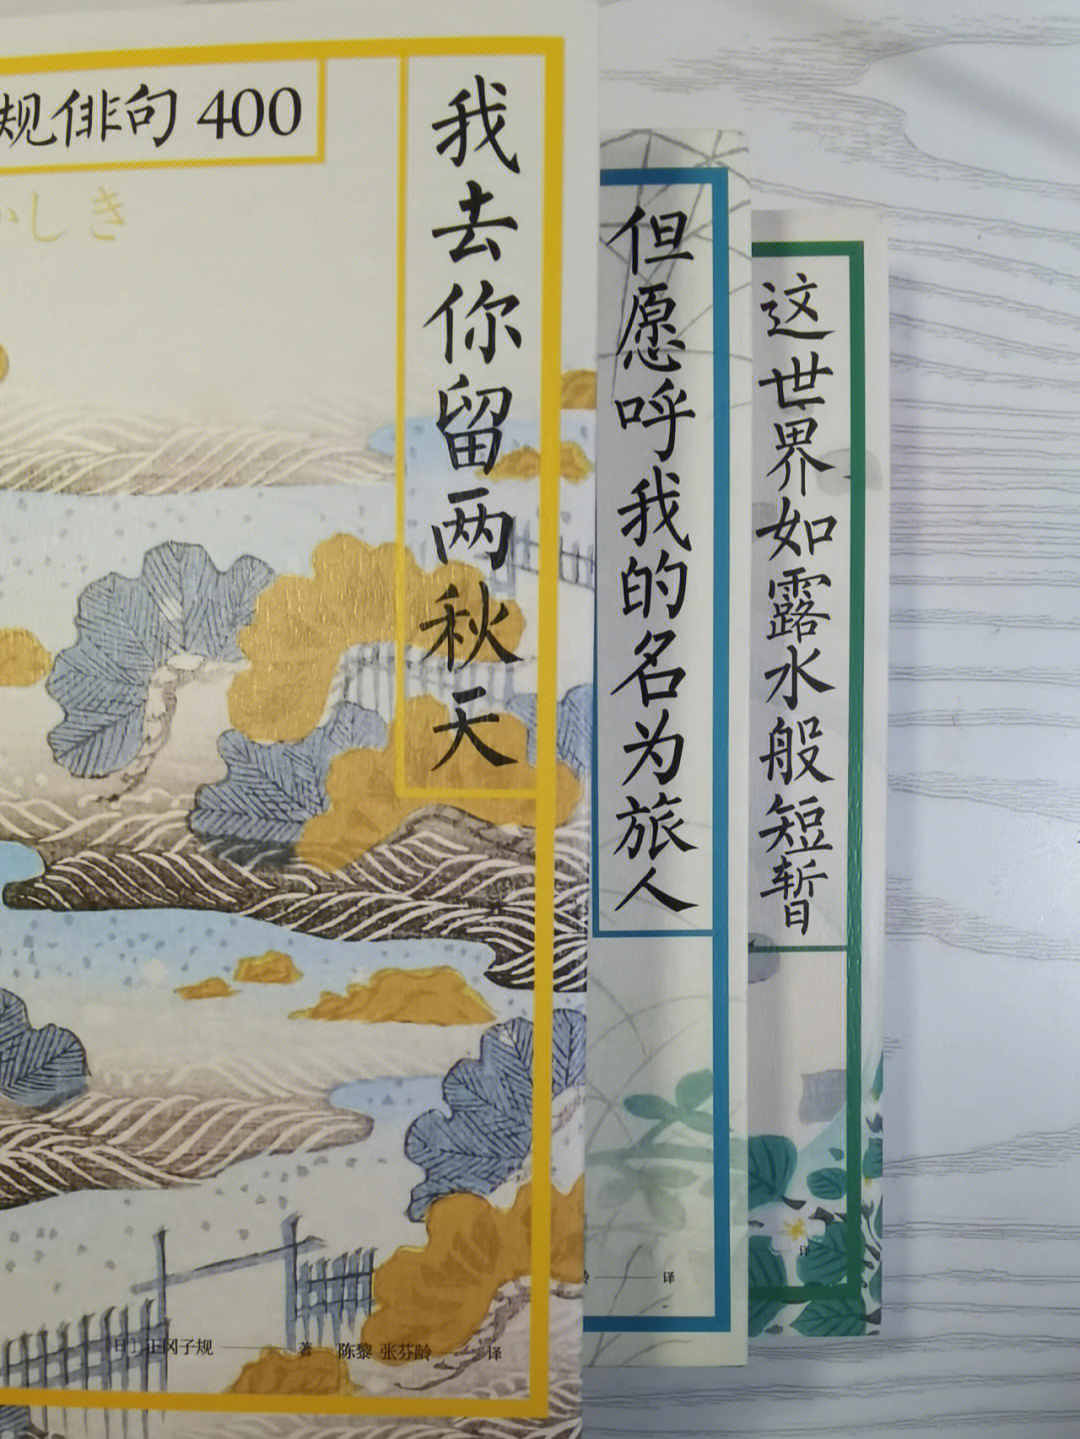 规俳句 400
しき
我去你留两秋天
[日] 正冈子规 著 陈黎 张芬龄 译
但愿呼我的名为旅人
龄 译
这世界如露水般短暂
译